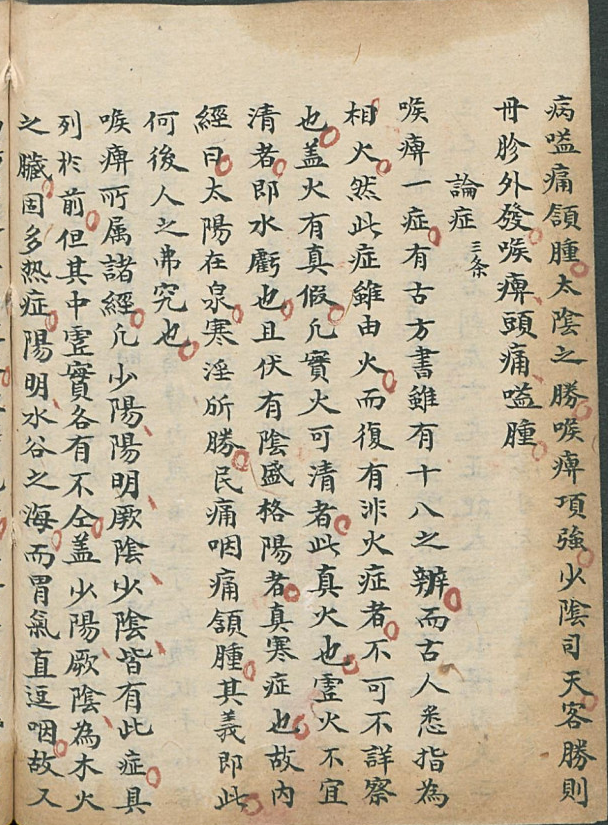 病嗌痛頷腫太陰之勝喉痹項強少陰司天客勝則
丹胗外發喉痹頭痛嗌腫
論症 三条
喉痹一症有古方書雖有十八之辨而古人悉指為
相火然此症雖由火而復有非火症者不可不詳察
也盖火有真假凢實火可清者此真火也虗火不宜
清者即水虧也且伏有陰盛格陽者真寒症也故内
經曰太陽在泉寒淫所勝民痛咽痛頷腫其義即此
何後人之弗究也
喉痹所属諸經凢少陽陽明厥陰少陰皆有此症具
列於前但其中虗實各有不仝盖少陽厥陰為木火
之臓固多热症陽明水谷之海而胃氣直逗咽故又